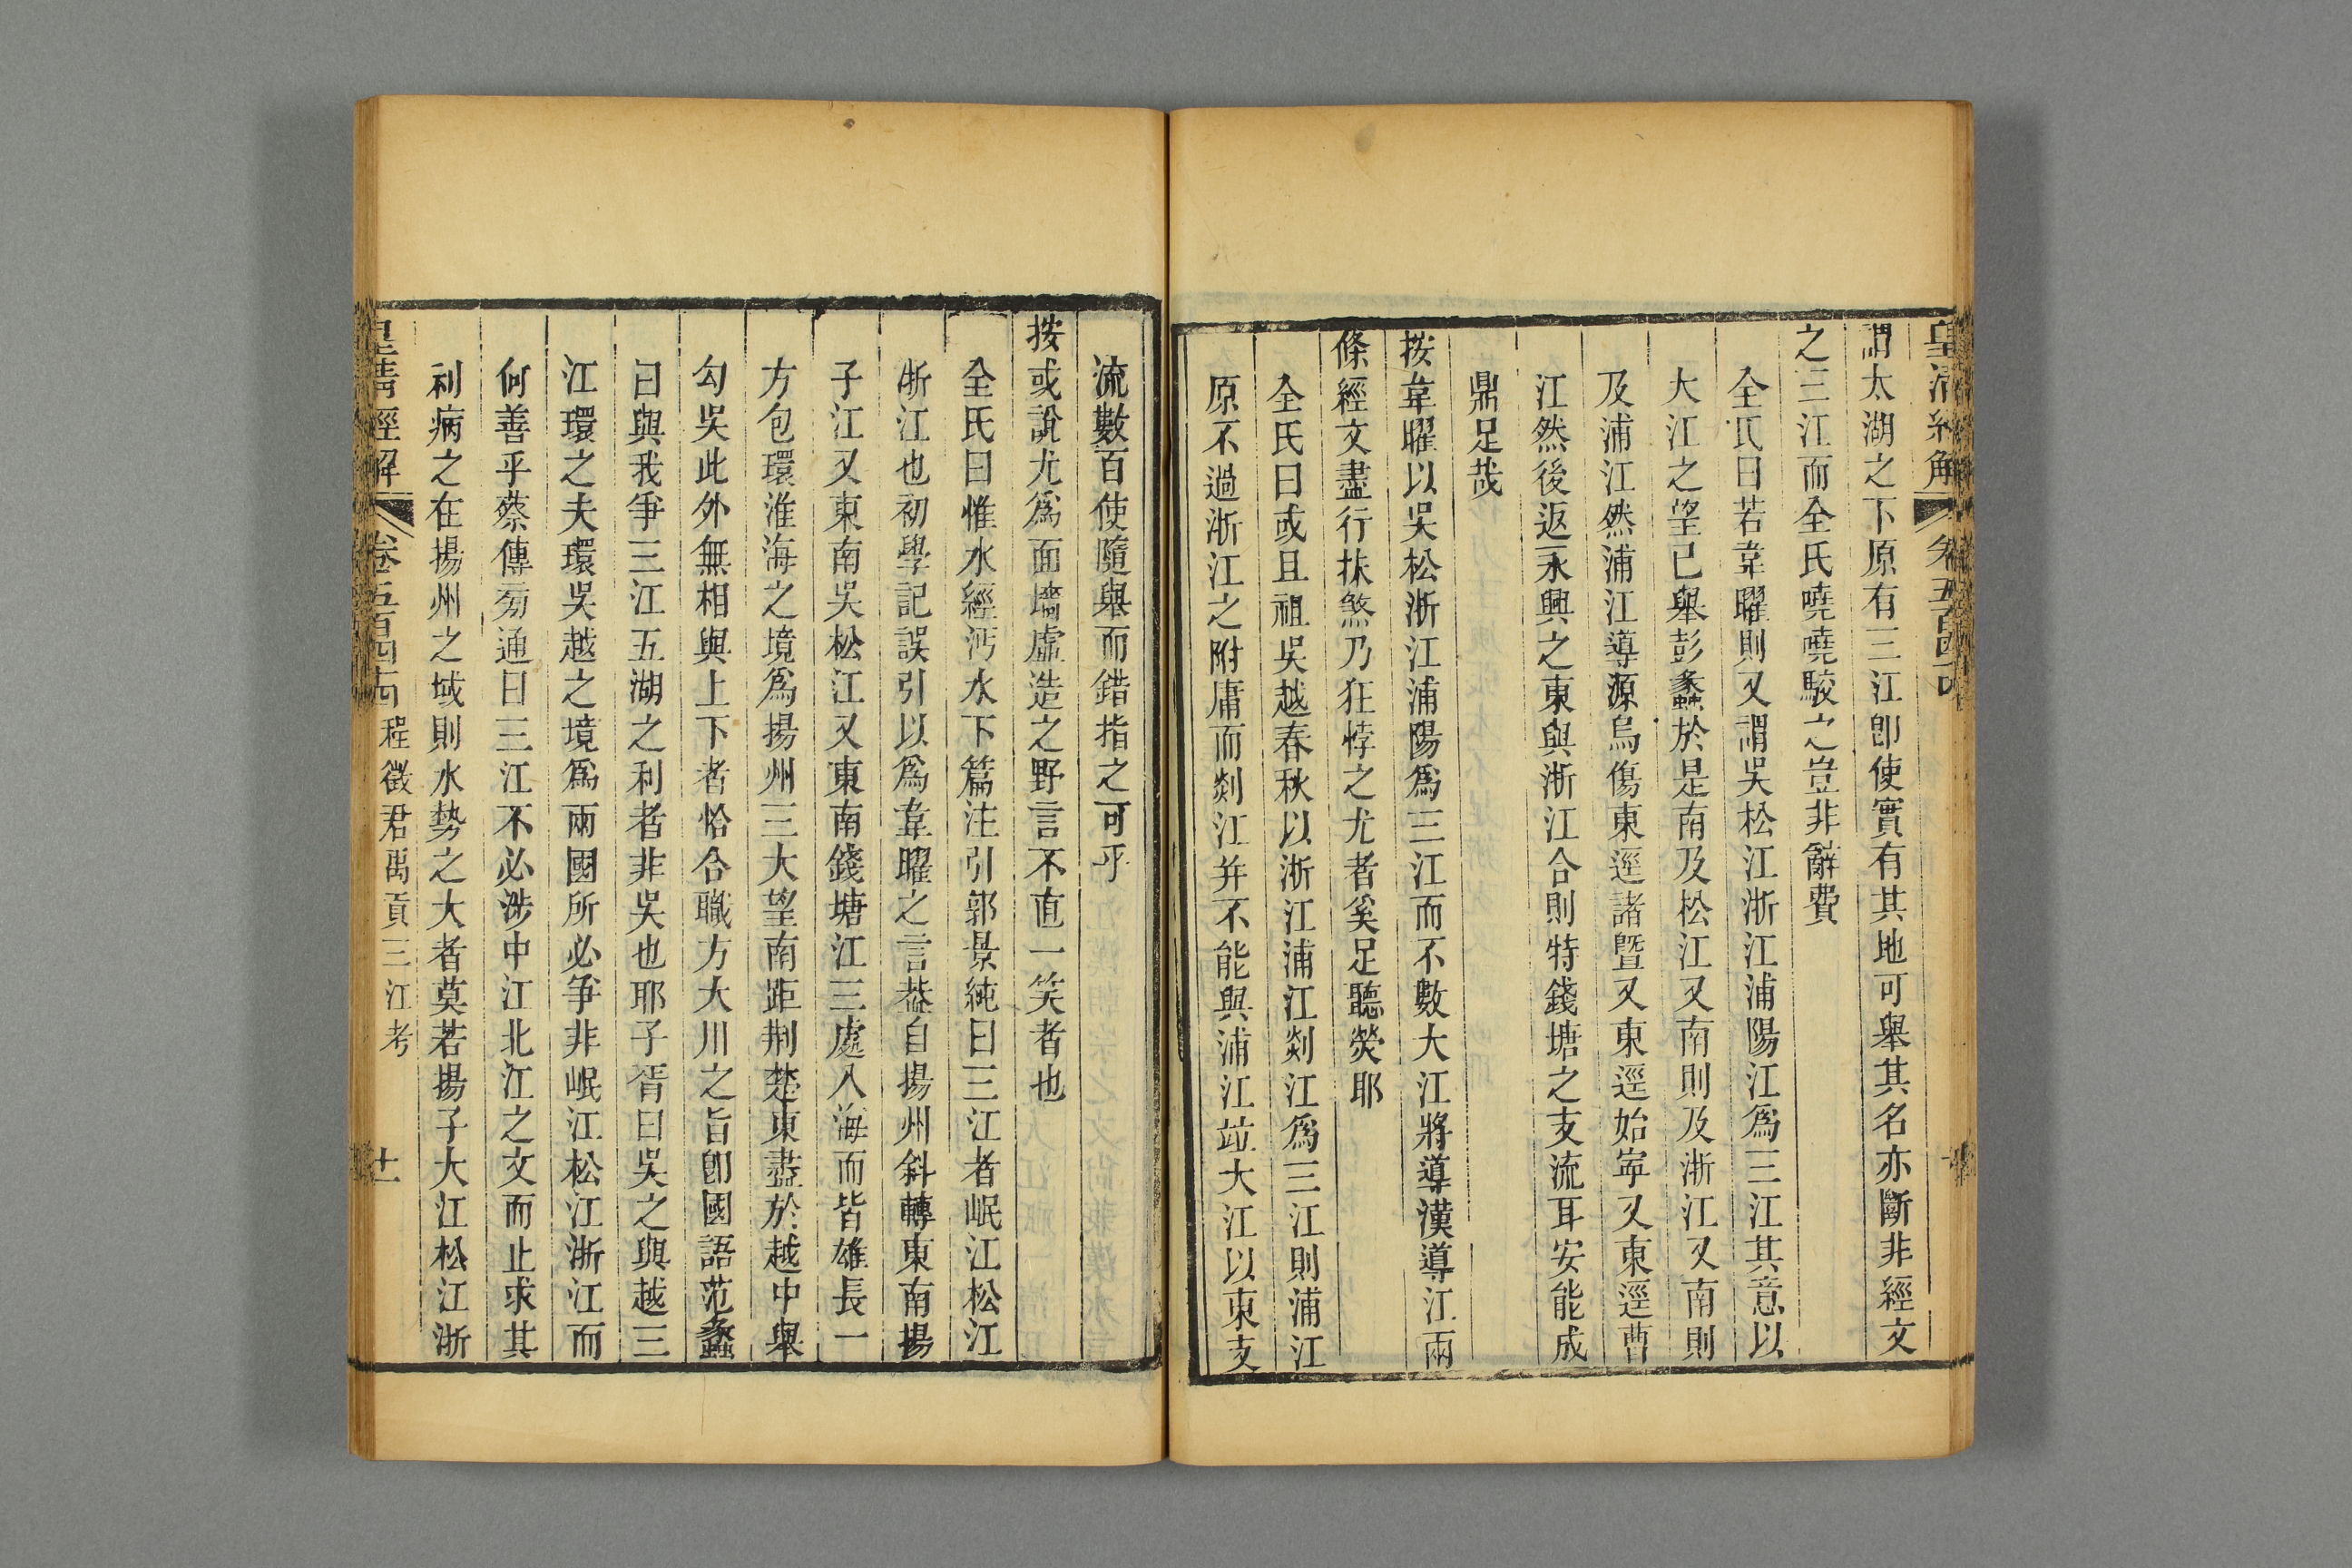 皇清經解 卷五百四十
謂太湖之下原有三江卽使實有其地可舉其名亦斷非經文
之三江而全氏嘵嘵駁之豈非辭費
全氏曰若韋曜則又謂吳松江浙江浦陽江爲三江其意以
大江之望已舉彭蠡於是南及松江又南則及浙江又南則
及浦江然浦江導源烏傷東逕諸曁又東逕始寧又東逕曹
江然後返永興之東與浙江合則特錢塘之支流耳安能成
鼎足哉
按韋曜以吳松浙江浦陽爲三江而不數大江將導漢導江兩
條經文盡行抹煞乃狂悖之尤者奚足聽熒耶
全氏曰或且祖吳越春秋以浙江浦江剡江爲三江則浦江
原不過浙江之附庸而剡江并不能與浦江竝大江以東支
流數百使隨舉而錯指之可乎
按或說尤爲面墻虛造之野言不直一笑者也
全氏曰惟水經沔水下篇注引郭景純曰三江者岷江松江
浙江也初學記誤引以爲韋曜之言葢自揚州斜轉東南揚
子江又東南吳松江又東南錢塘江三處入海而皆雄長一
方包環淮海之境爲揚州三大望南距荆楚東盡於越中舉
勾吳此外無相與上下者恰合職方大川之旨卽國語范蠡
曰與我爭三江五湖之利者非吳也耶子胥曰吳之與越三
江環之夫環吳越之境爲兩國所必爭非岷江松江浙江而
何善乎蔡傳菊通曰三江不必涉中江北江之文而止求其
利病之在揚州之域則水勢之大者莫若揚子大江松江浙
皇清經解 卷五百四十 程徵君禹貢三江考 十一